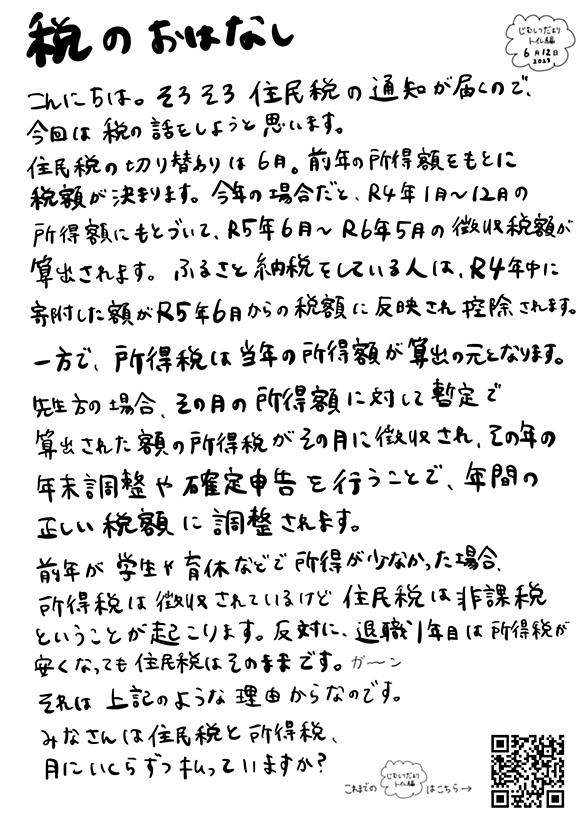 税のおはなし
じむしつだより
トイレ編
6月12日
2023
こんにちは。そろそろ住民税の通知が届くので、
今回は税の話をしようと思います。
住民税の切り替わりは6月。前年の所得額をもとに
税額が決まります。今年の場合だと、R4年1月～12月の
所得額にもとづいて、R5年6月～R6年5月の徴収税額が
算出されます。ふるさと納税をしている人は、R4年中に
寄附した額がR5年6月からの税額に反映され控除されます。
一方で、所得税は当年の所得額が算出の元となります。
先生方の場合、その月の所得額に対して暫定で
算出された額の所得税がその月に徴収され、その年の
年末調整や確定申告を行うことで、年間の
正しい税額に調整されます。
前年が学生や育休などで所得が少なかった場合、
所得税は徴収されているけど住民税は非課税
ということが起こります。反対に、退職1年目は所得税が
安くなっても住民税はそのままです。ガーン
それは上記のような理由からなのです。
みなさんは住民税と所得税、
月にいくらずつ払っていますか?
これまでの
じむしつだより
トイレ編
はこちら→